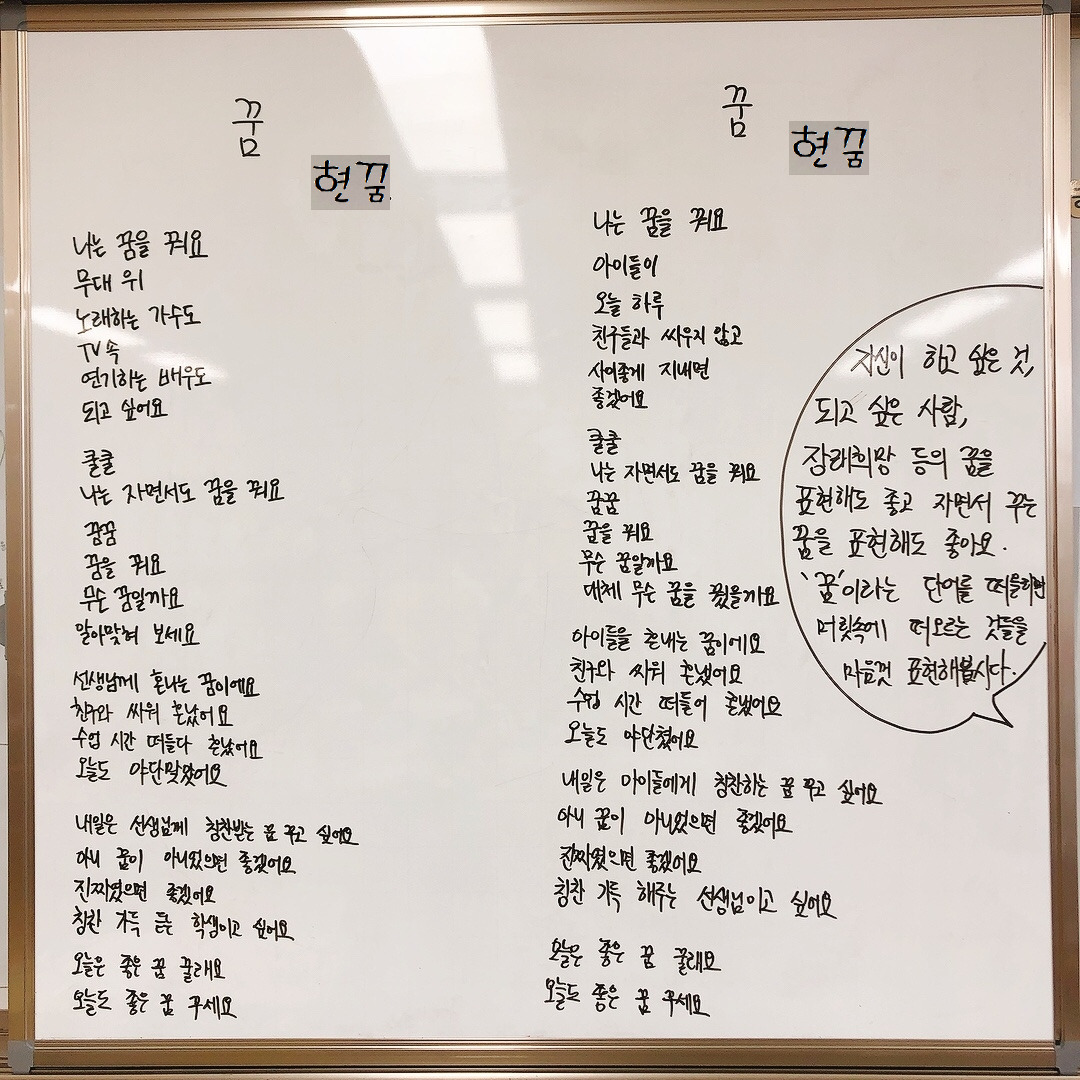 꿈
현꿈
나는 꿈을 꿔요
무대 위
노래하는 가수도
TV속
연기하는 배우도
되고 싶어요
쿨쿨
나는 자면서도 꿈을 꿔요
꿈꿈
꿈을 꿔요
무슨 꿈일까요
알아맞혀 보세요
선생님께 혼나는 꿈이에요
친구와 싸워 혼났어요
수업 시간 떠들다 혼났어요
오늘도 야단맞았어요
내일은 선생님께 칭찬받는 꿈 꾸고 싶어요
아니 꿈이 아니었으면 좋겠어요
진짜였으면 좋겠어요
칭찬 가득 듣는 학생이고 싶어요
오늘은 좋은 꿈 꿀래요
오늘도 좋은 꿈 꾸세요
꿈
현꿈
나는 꿈을 꿔요
아이들이
오늘 하루
친구들과 싸우지 않고
사이좋게 지내면
좋겠어요
쿨쿨
나는 자면서도 꿈을 꿔요
꿈꿈
꿈을 꿔요
무슨 꿈일까요
대체 무슨 꿈을 꿨을까요
아이들을 혼내는 꿈이에요
친구와 싸워 혼냈어요
수업 시간 떠들어 혼냈어요
오늘도 야단쳤어요
내일은 아이들에게 칭찬하는 꿈 꾸고 싶어요
아니 꿈이 아니었으면 좋겠어요
진짜였으면 좋겠어요
칭찬 가득 해주는 선생님이고 싶어요
오늘은 좋은 꿈 꿀래요
오늘도 좋은 꿈 꾸세요
자신이 하고 싶은 것,
되고 싶은 사람,
장래희망 등의 꿈을
표현해도 좋고 자면서 꾸는
꿈을 표현해도 좋아요.
'꿈'이라는 단어를 떠올리면
머릿속에 떠오르는 것들을
마음껏 표현해봅시다.